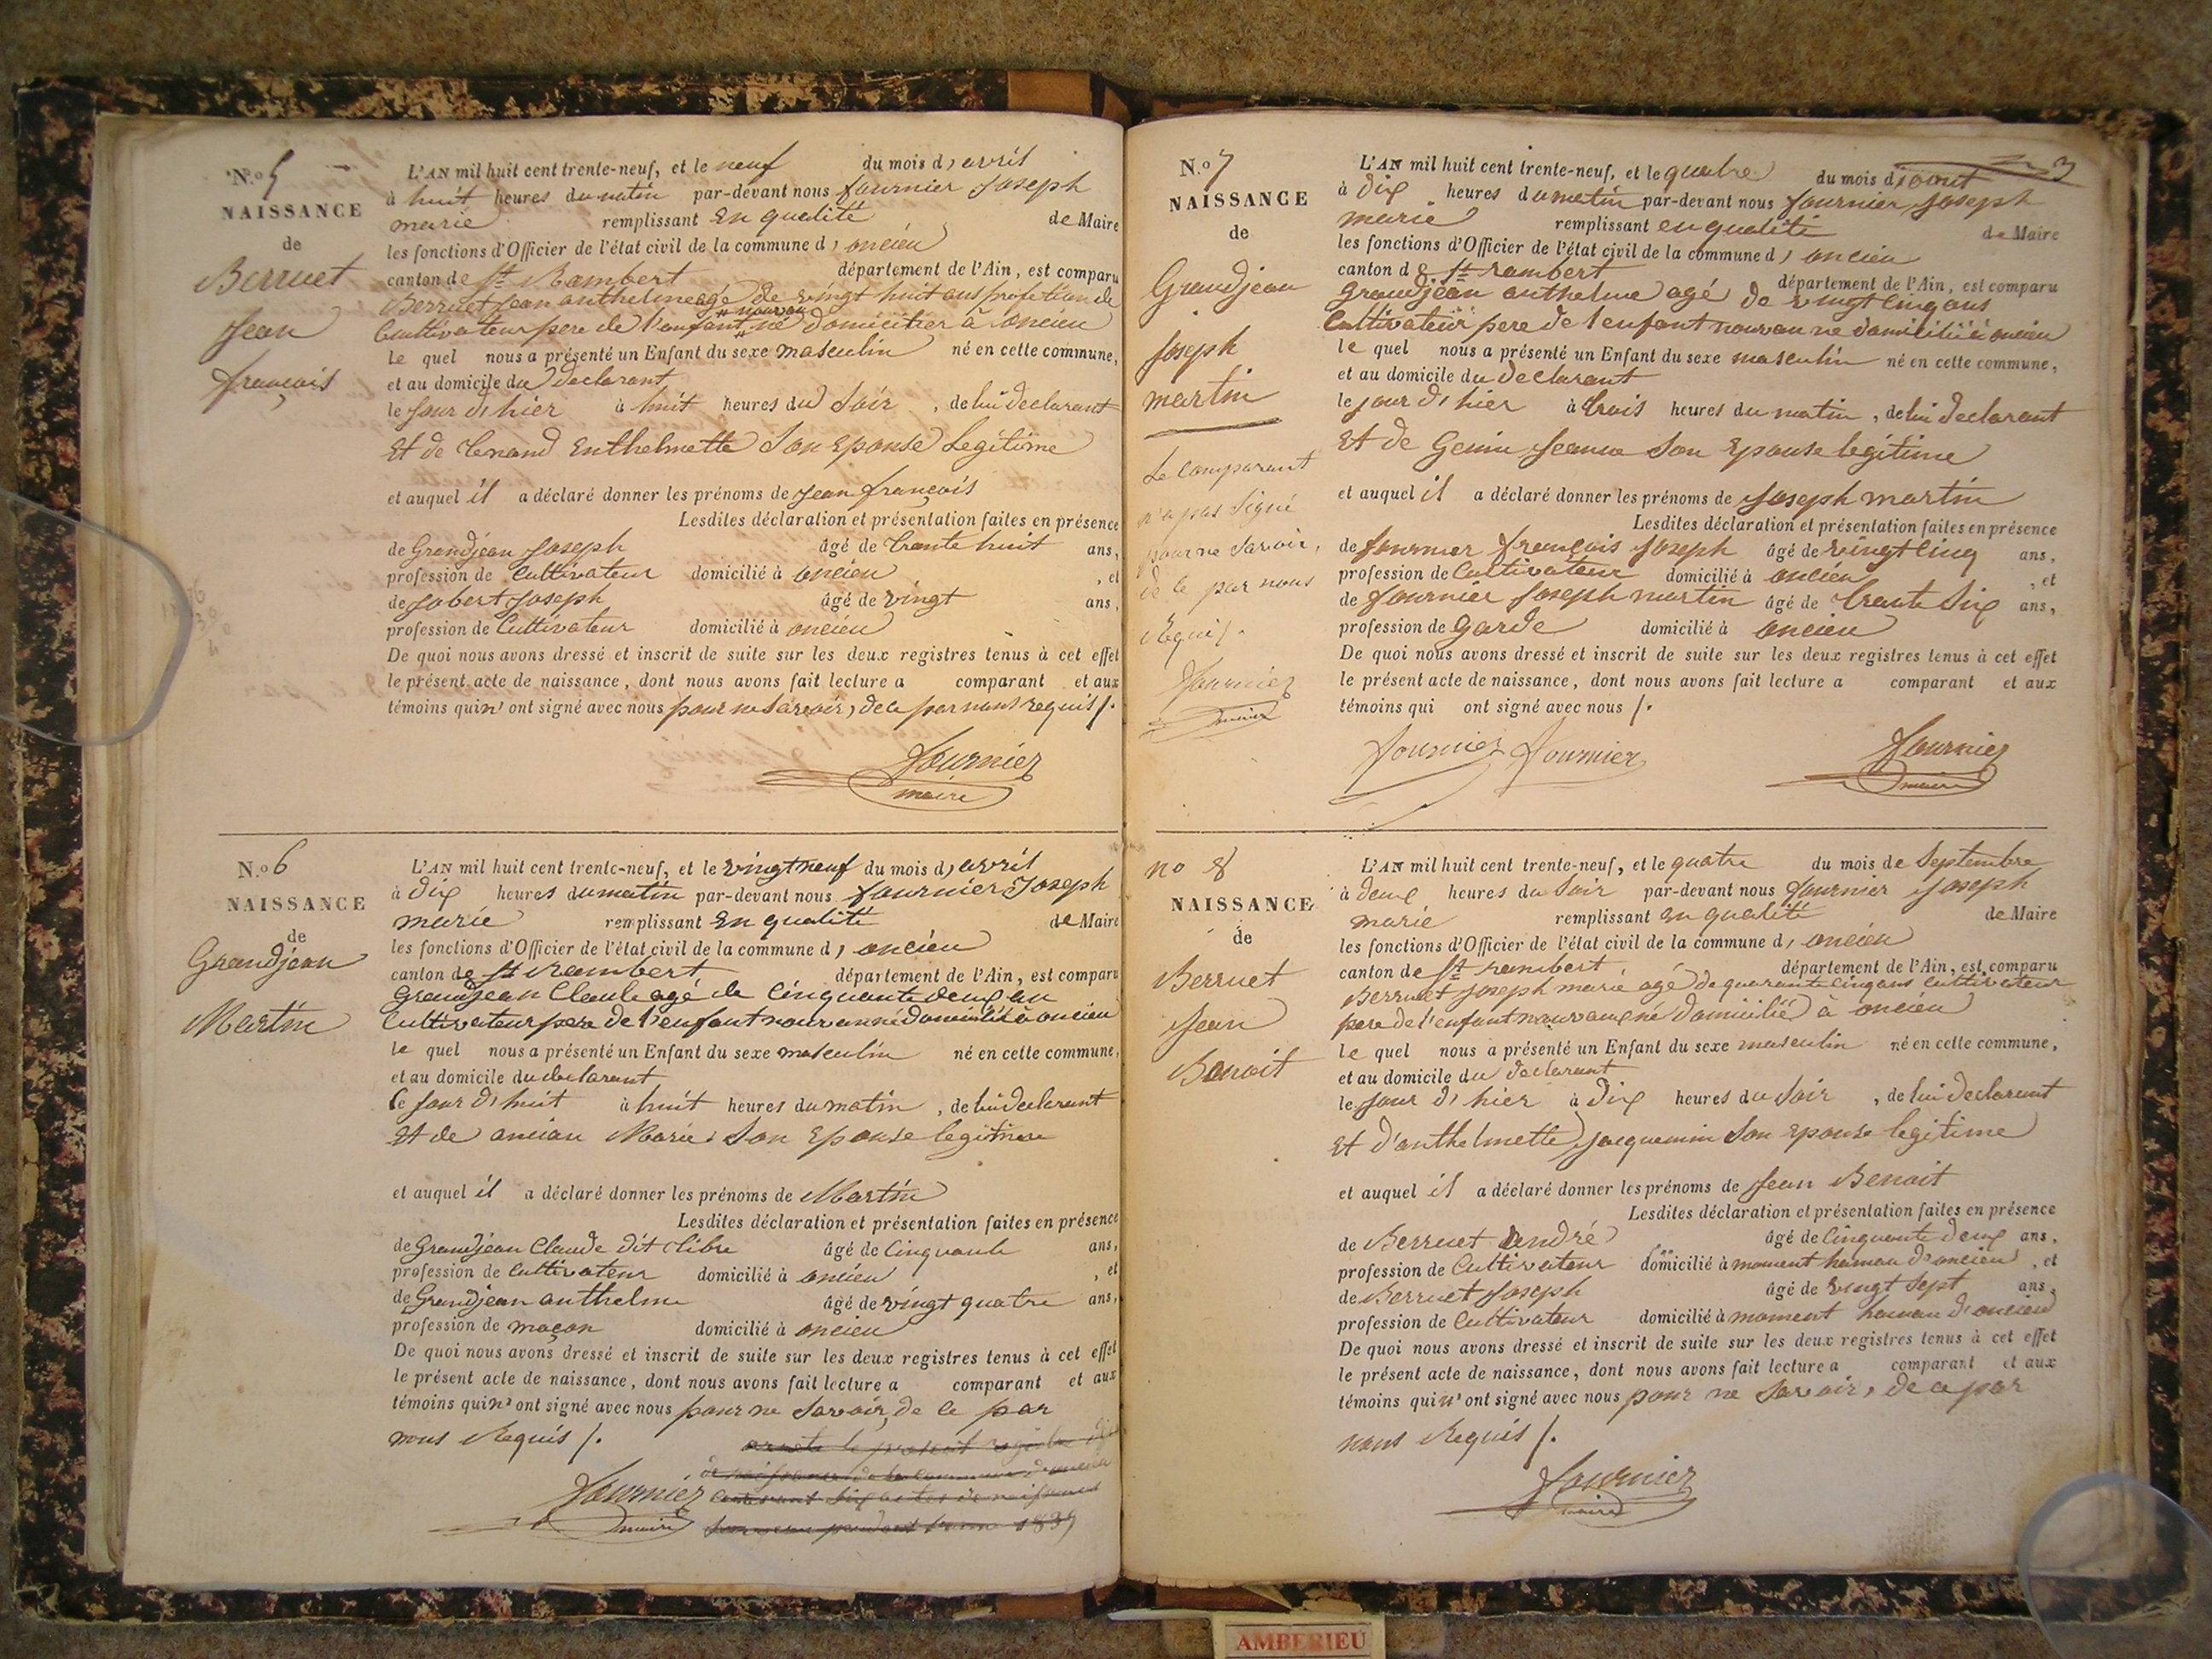 N.o 5
NAISSANCE
de
Berruet
Jean
françois
L'AN mil huit cent trente-neuf, et le neuf du mois d'avril
à huit heures du matin par-devant nous fournier Joseph
marie remplissant En qualité de Maire
les fonctions d'Officier de l'état civil de la commune d'oncieu
canton de St Rambert département de l'Ain, est comparu
Berruet Jean anthelme agé de vingt huit ans profession de
Cultivateur pere de l'enfant nouvau né domicilier à oncieu
le quel nous a présenté un Enfant du sexe masculin né en cette commune,
et au domicile du declarant
le jour d'hier à huit heures du Soir, de lui declarant
Et de tenand Enthelmette Son Epouse Legitime
et auquel il a déclaré donner les prénoms de Jean françois
Lesdites déclaration et présentation faites en présence
de Grandjean Joseph âgé de trante huit ans,
profession de Cultivateur domicilié à oncieu, et
de Jobert Joseph âgé de vingt ans,
profession de Cultivateur domicilié à oncieu
De quoi nous avons dressé et inscrit de suite sur les deux registres tenus à cet effet
le présent acte de naissance, dont nous avons fait lecture a comparant et aux
témoins qui n'ont signé avec nous pour ne Savoir, de ce par nous requis /.
fournier
maire
N.o 6
NAISSANCE
de
Grandjean
Martin
L'AN mil huit cent trente-neuf, et le vingt neuf du mois d'avril
à dix heures du matin par-devant nous fournier Joseph
marie remplissant En qualité de Maire
les fonctions d'Officier de l'état civil de la commune d'oncieu
canton de St Rambert département de l'Ain, est comparu
Grandjean Claude agé de Cinquante deux an
Cultivateur pere de l'enfant nouvau né domicilié à oncieu
le quel nous a présenté un Enfant du sexe masculin né en cette commune,
et au domicile du declarant
le jour d'huit à huit heures du matin, de lui declarant
Et de ancian Marie Son Epouse legitime
et auquel il a déclaré donner les prénoms de Martin
Lesdites déclaration et présentation faites en présence
de Grandjean Claude dit âgé de Cinquante ans,
profession de Cultivateur domicilié à oncieu, et
de Grandjean anthelme âgé de vingt quatre ans,
profession de maçon domicilié à oncieu
De quoi nous avons dressé et inscrit de suite sur les deux registres tenus à cet effet
le présent acte de naissance, dont nous avons fait lecture a comparant et aux
témoins qui n'ont signé avec nous pour ne Savoir, de ce par
nous Requis /.
arrêté le présent registre
de naissances de la commune d'oncieu
contenant six actes de naissances
pendant l'année 1839
fournier
maire
3
N.o 7
NAISSANCE
de
Grandjean
Joseph
martin
Le comparant
n'a pas Signé
pour ne Savoir,
de ce par nous
Requis.
fournier
maire
L'AN mil huit cent trente-neuf, et le quatre du mois d'aout
à dix heures du matin par-devant nous fournier Joseph
marie remplissant en qualité de Maire
les fonctions d'Officier de l'état civil de la commune d'oncieu
canton de St rambert département de l'Ain, est comparu
Grandjean anthelme agé de vingt cinq ans
Cultivateur pere de l'enfant nouvau né domicilié à oncieu
le quel nous a présenté un Enfant du sexe masculin né en cette commune,
et au domicile du declarant
le jour d'hier à trois heures du matin, de lui declarant
Et de Genin Jeanne Son Epouse legitime
et auquel il a déclaré donner les prénoms de Joseph martin
Lesdites déclaration et présentation faites en présence
de fournier françois Joseph âgé de vingt cinq ans,
profession de Cultivateur domicilié à oncieu, et
de fournier Joseph martin âgé de trante Six ans,
profession de Garde domicilié à oncieu
De quoi nous avons dressé et inscrit de suite sur les deux registres tenus à cet effet
le présent acte de naissance, dont nous avons fait lecture a comparant et aux
témoins qui ont signé avec nous /.
fournier fournier fournier
maire
no 8
NAISSANCE
de
Berruet
Jean
Benoit
L'AN mil huit cent trente-neuf, et le quatre du mois de Septembre
à deux heures du Soir par-devant nous fournier Joseph
marie remplissant En qualité de Maire
les fonctions d'Officier de l'état civil de la commune d'oncieu
canton de St rambert département de l'Ain, est comparu
Berruet Joseph marie agé de quarante cinq ans Cultivateur
pere de l'enfant nouvaux né domicilié à oncieu
le quel nous a présenté un Enfant du sexe masculin né en cette commune,
et au domicile du declarant
le jour d'hier à dix heures du Soir, de lui declarent
Et d'anthelmette Jacquemin Son Epouse legitime
et auquel il a déclaré donner les prénoms de Jean Benoit
Lesdites déclaration et présentation faites en présence
de Berruet André âgé de Cinquante deux ans,
profession de Cultivateur domicilié à moment hamau d'oncieu, et
de Berruet Joseph âgé de vingt Sept ans,
profession de Cultivateur domicilié à moment hamau d'oncieu
De quoi nous avons dressé et inscrit de suite sur les deux registres tenus à cet effet
le présent acte de naissance, dont nous avons fait lecture a comparant et aux
témoins qui n'ont signé avec nous pour ne Savoir, de ce par
nous Requis /.
fournier
maire
AMBERIEU